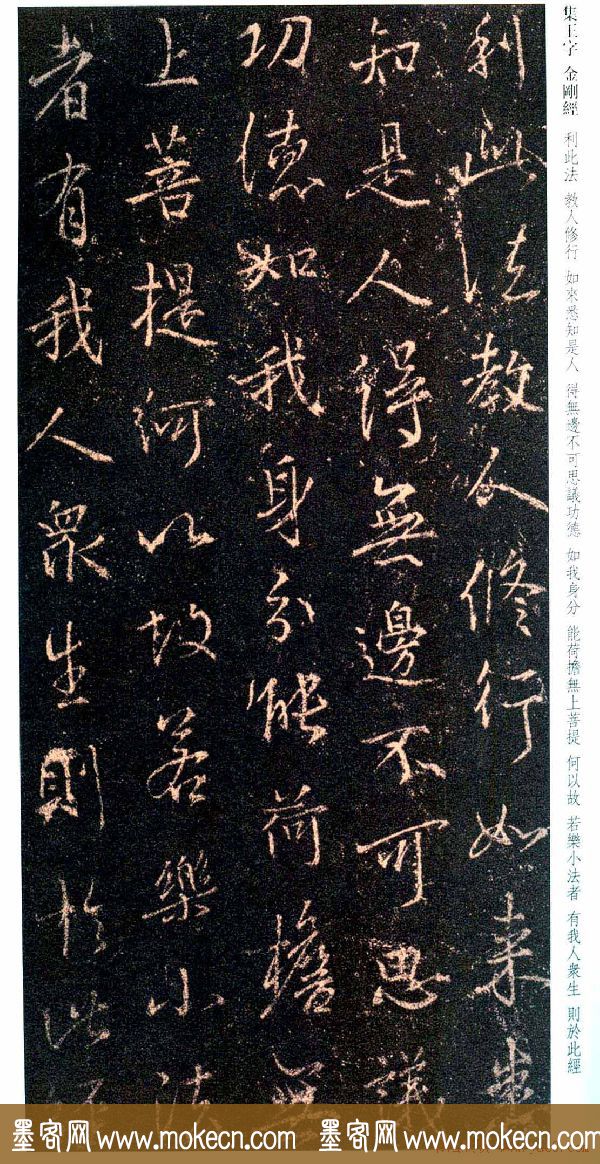 集王字 金剛經 利此法 教人修行 如來悉知是人 得無邊不可思議功德 如我身分 能荷擔無上菩提 何以故 若樂小法者 有我人眾生 則於此經
利此法教人修行如来悉
知是人得無邊不可思議
功德如我身分能荷擔無
上菩提何以故若樂小法
者有我人衆生則於此經
墨客网 www.mokecn.com 墨客网 www.mokecn.com